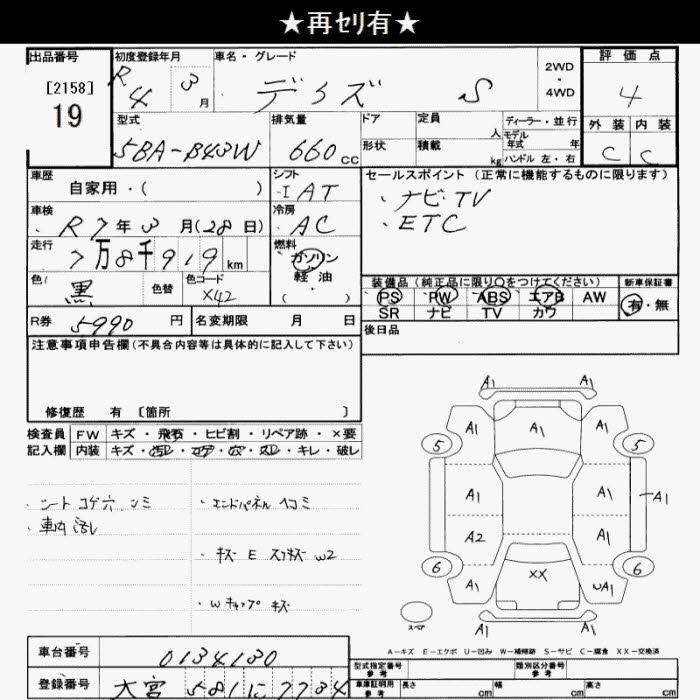 ★再ｾﾘ有★
出品番号
[2158]
19
初度登録年月
R4 3月
車名・グレード
デイズ S
2WD
・
4WD
評価点
4
外装 内装
C C
型式
5BA-B43W
排気量
660cc
ドア
形状
定員 人
積載 kg
ディーラー・並行
モデル年式 年
ハンドル 左・右
車歴
自家用・( )
シフト
I AT
セールスポイント (正常に機能するものに限ります)
・ナビTV
・ETC
車検
R7年3月(28日)
冷房
AC
走行
7万8千919km
燃料
ガソリン
軽・油
( )
色
黒
色替
色コード
X42
装備品 (純正品に限り○をつけてください)
PS PW ABS エアB AW
SR ナビ TV カワ
新車保証書
有・無
R券 5990円
名変期限 月 日
後日品
注意事項申告欄(不具合内容等は具体的に記入して下さい)
修復歴 有 [箇所 ]
検査員記入欄
FW キズ・飛石・ヒビ割・リペア跡・×要
内装 キズ・汚レ・コゲ・穴・スレ・キレ・破レ
・シート コゲ穴 シミ
・車内 汚レ
・エンドパネル ヘコミ
・キズ E スリキズ W2
・Wキャップ キズ
A1 A1
A1 A1 A1
5 5
A1 A1 A1
A2 A1
6 XX 6
A1 UA1
A1 A1
スペア
A－キズ E－エクボ U－凹み W－補修跡 S－サビ C－腐食 XX－交換済
車台番号 0134130
登録番号 大宮 581 に 7734
型式指定番号 参考
類別区分番号 参考
車庫証明用 参考
長さ cm 幅 cm 高さ cm